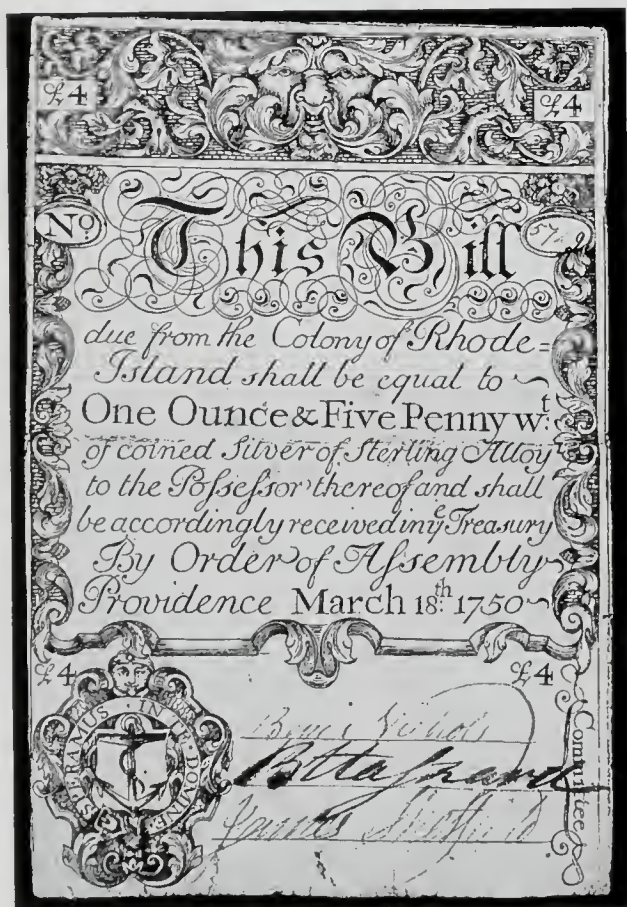 £4 £4
No
This Bill
due from the Colony of Rhode=
Island shall be equal to
One Ounce & Five Pennyw.t
of coined Silver of Sterling Alloy
to the Possessor thereof and shall
be accordingly received in ye Treasury
By Order of Assembly
Providence March 18th. 1750
£4 £4
IN TE DOMINE SPERAMUS
Committee